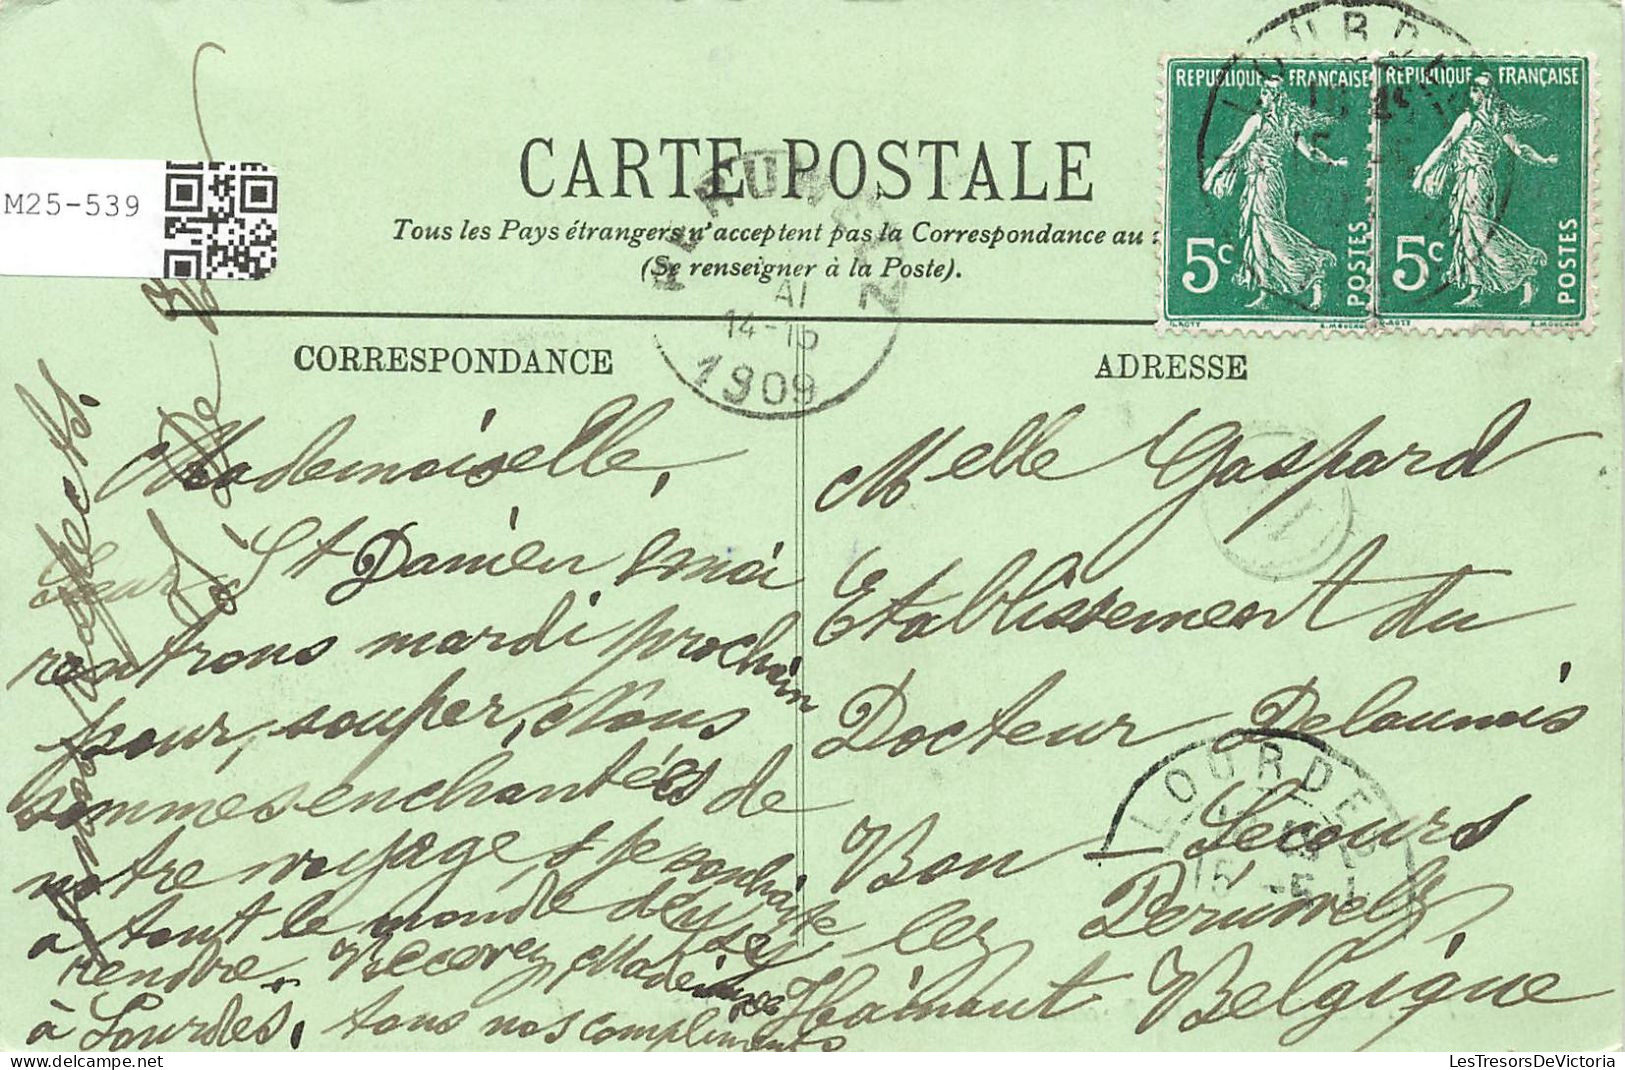 M25-539
CARTE POSTALE
Tous les Pays étrangers n'acceptent pas la Correspondance au
(Se renseigner à la Poste).
REPUBLIQUE FRANÇAISE
5c POSTES
REPUBLIQUE FRANÇAISE
5c POSTES
LOURDES
PERUWELZ
AI
14-15
1909
CORRESPONDANCE
ADRESSE
Mademoiselle,
Sœur St Damien & moi
rentrons mardi prochain
pour souper, Nous
sommes enchantées de
notre voyage, & je souhaite
à tout le monde de s'y
rendre. Recevez, Mademoiselle
à Lourdes, tous nos compliments
respects.
Melle Gaspard
Etablissement du
Docteur Delaunois
Bon-Secours
lez Péruwelz
Hainaut Belgique
LOURDES
15 -5
LesTresorsDeVictoria